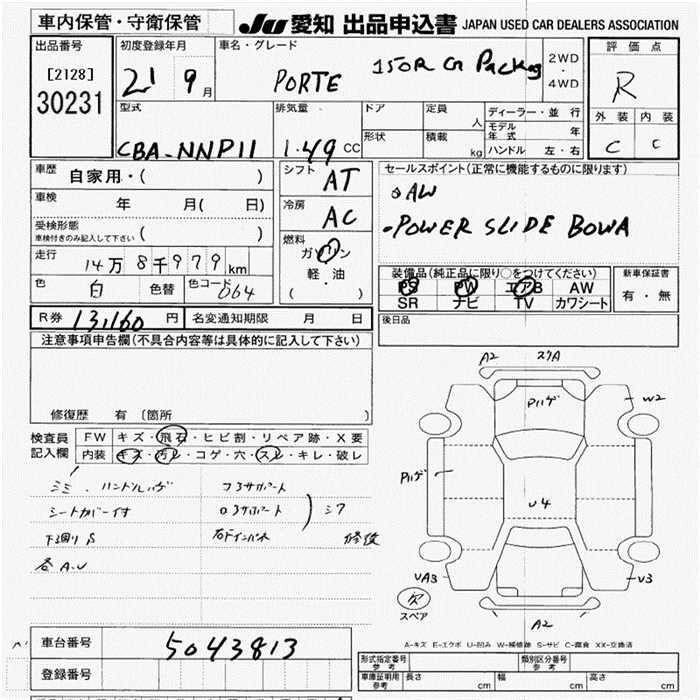 車内保管・守衛保管
JU 愛知 出品申込書 JAPAN USED CAR DEALERS ASSOCIATION
出品番号
[2128]
30231
初度登録年月
21 9月
車名・グレード
PORTE 150R G Package
2WD
・
4WD
評価点
R
外装 内装
C C
型式
CBA-NNP11
排気量
1.49 CC
ドア
定員 人
形状
積載 kg
ディーラー・並行
モデル年式 年
ハンドル 左・右
車歴 自家用・( )
車検 年 月( 日)
受検形態
車検付きのみ記入して下さい ( )
走行 14万8千979km
色 白 色替 色コード 064
シフト AT
冷房 AC
燃料
ガソリン
軽・油
( )
セールスポイント(正常に機能するものに限ります)
AW
・POWER SLIDE BOWA
装備品(純正品に限り○をつけてください)
PS PW エアB AW
SR ナビ TV カワシート
新車保証書
有・無
R券 13,160 円 名変通知期限 月 日
後日品
注意事項申告欄(不具合内容等は具体的に記入して下さい)
修復歴 有 [箇所 ]
検査員
記入欄
FW キズ・飛石・ヒビ割・リペア跡・X要
内装 キズ・汚レ・コゲ・穴・スレ・キレ・破レ
シミ、ハンドルハゲ
シートカバー付
下廻りS
各A.U
コアサポート
ロアサポート
右ドインパネ
修復
A2 スリA
Pハゲ
W2
Pハゲ
U4
UA3
U3
欠
スペア
A2
A-キズ E-エクボ U-凹み W-補修跡 S-サビ C-腐食 XX-交換済
車台番号 5043813
登録番号
形式指定番号
参考
類別区分番号
参考
車庫証明用
参考
長さ cm 幅 cm 高さ cm